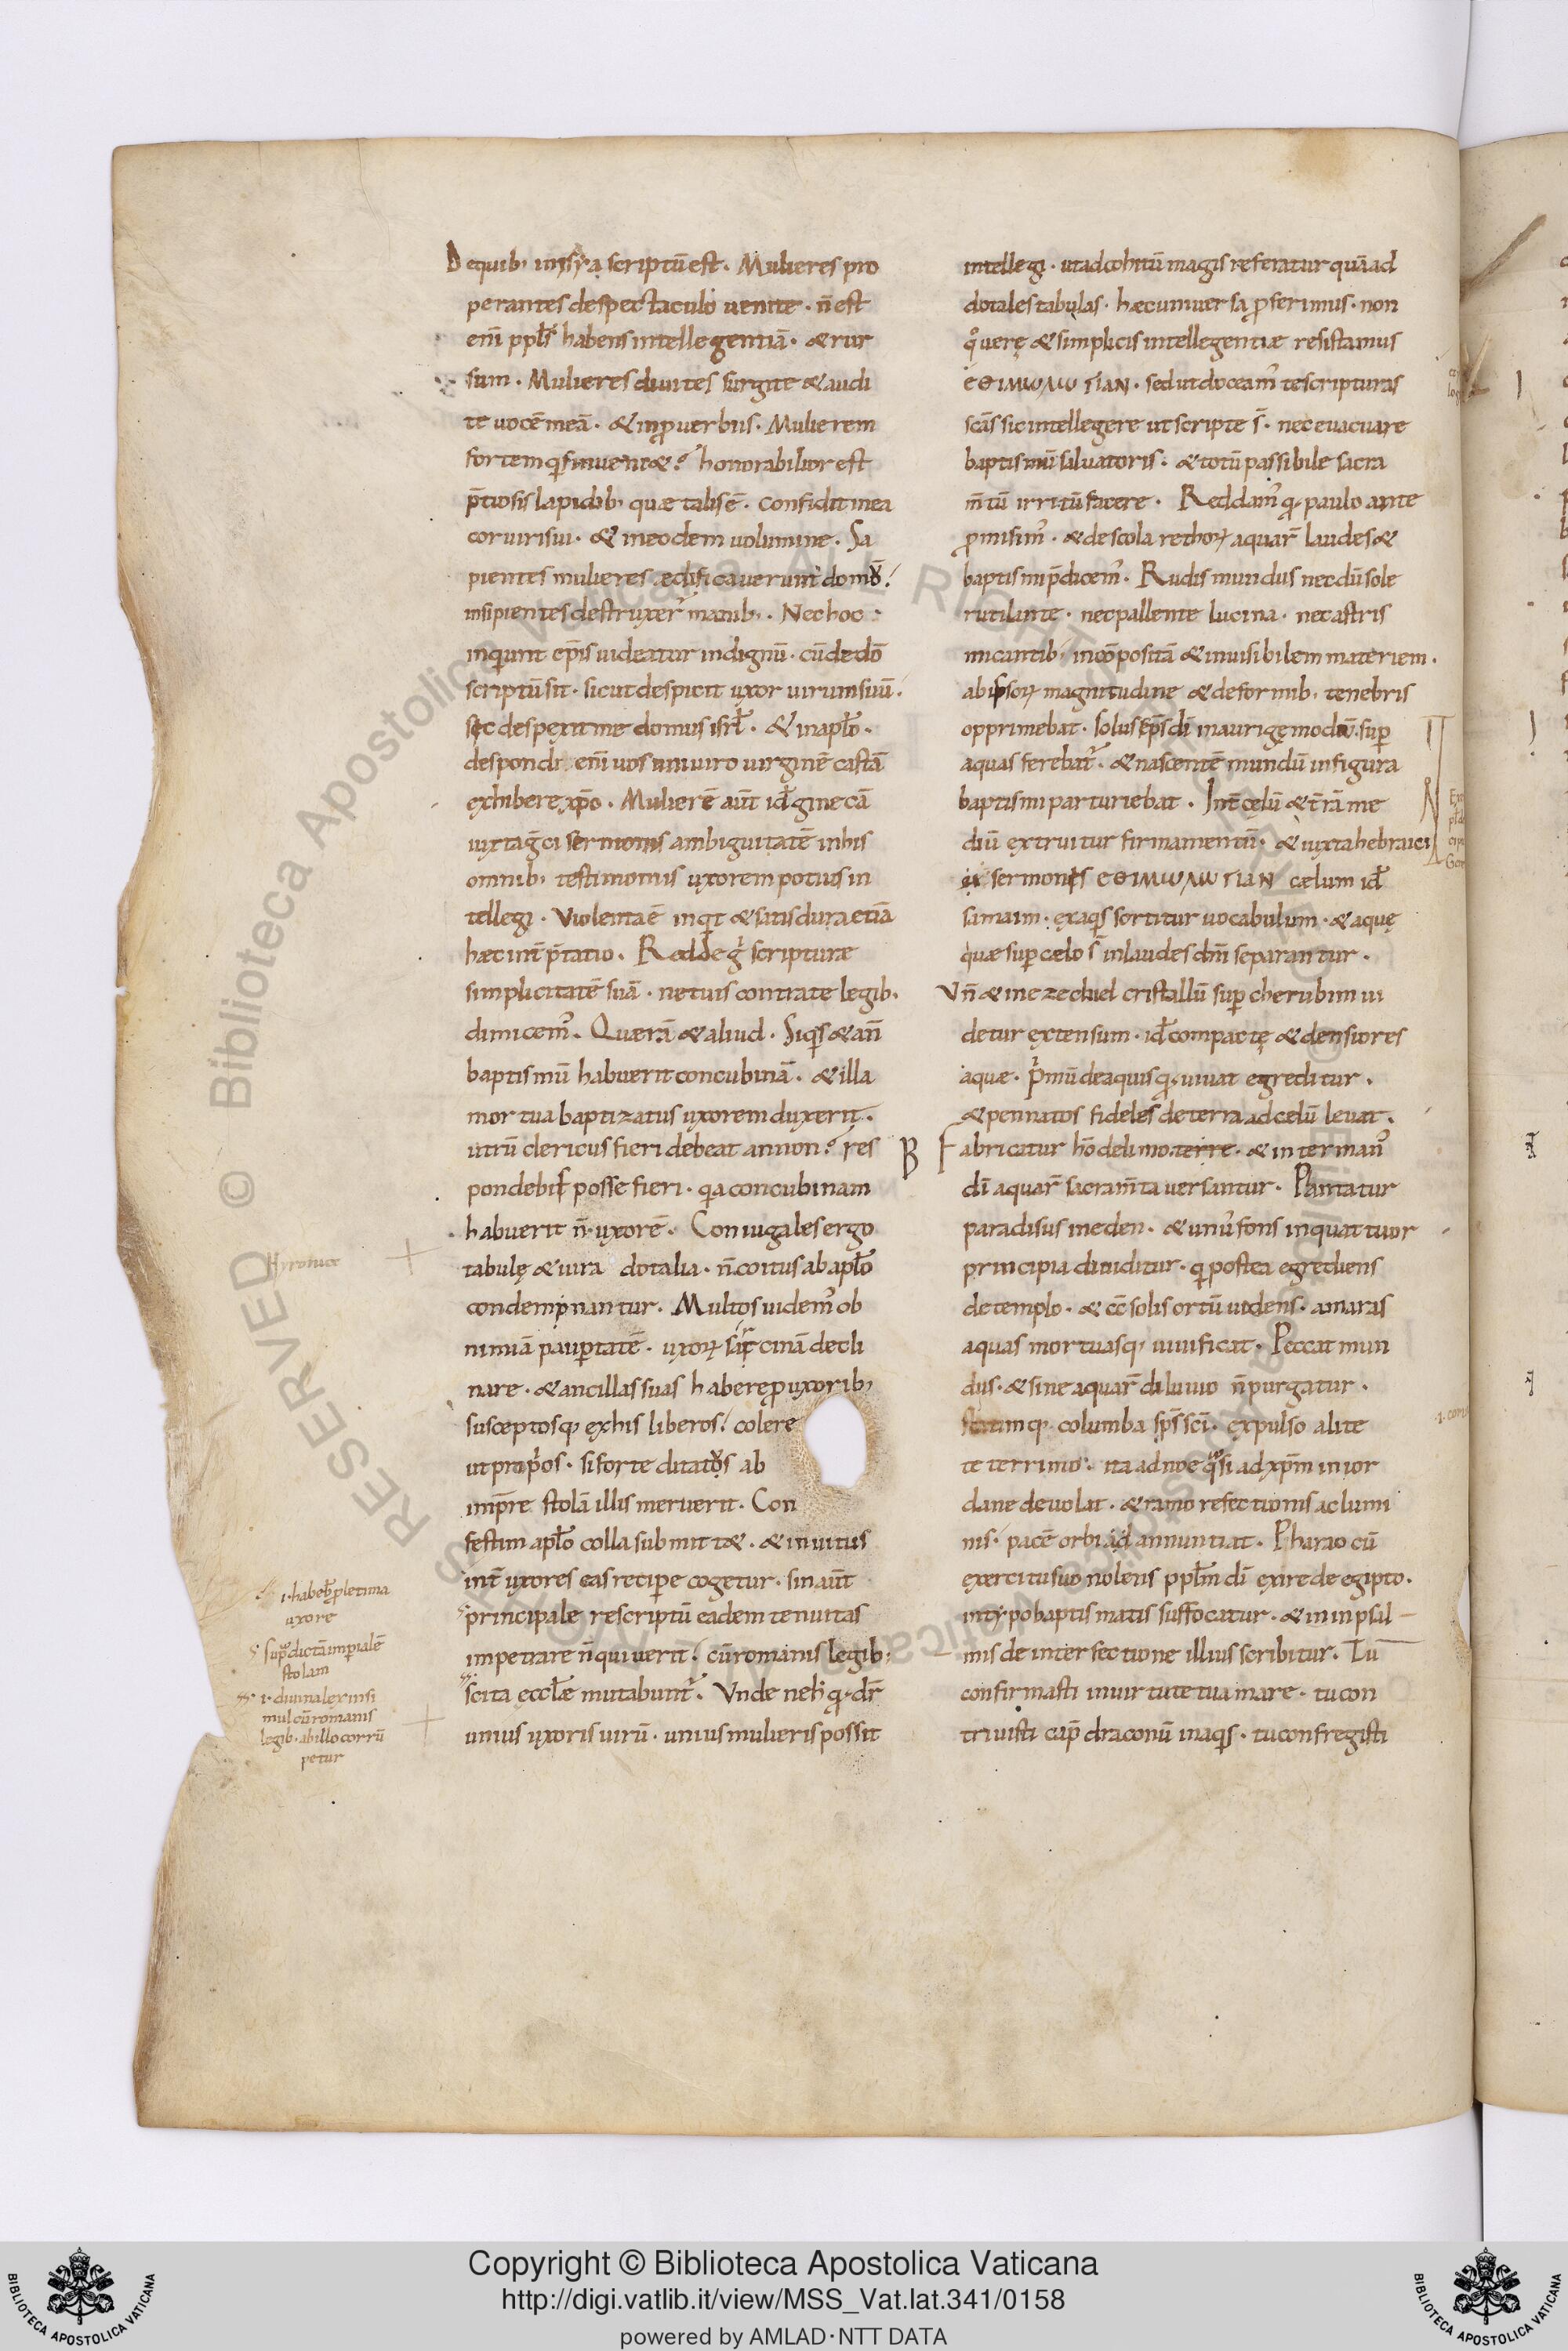 Dequib; inysaya scriptū est. Mulieres pro
perantes despectaculo uenite. n̄ est
enī ppl̄s habens intellegentiā. & rur
sum. Mulieres diuites surgite & audi
te uocē meā. & inꝓuerbiis. Mulierem
fortem qͥs inueni&? honorabilior est
p̄tiosis lapidib; quae talis ē. confidit in ea
cor uiri sui. & in eodem uolumine. Sa
pientes mulieres ędificauerunt domꝰ.
insipientes destruxer̄ manib;. Nec hoc
inquiunt ep̄is uideatur indignū. cū de dō
scriptū sit. sicut despicit uxor uirum suū.
sic despexit me domus isrl̄. & in apl̄o.
despondi enī uos uni uiro uirginē castā
exhibere xp̄o. Mulierē aūt id ē gineca
iuxta g̅ci sermonis ambiguitatē in his
omnib; testimoniis uxorem potius in
tellegi. Violenta ē inquit & satis dura etiā
haec int̄p̄tatio. Redde g̊ scripturae
simplicitatē suā. ne tuis contra te legib;
dimicem᾽. Querā & aliud. Siquis & an̄
baptismū habuerit concubinā. & illa
mortua baptizatus uxorem duxerit.
utrū clericus fieri debeat an non? res
pondebis posse fieri. quia concubinam
habuerit n̄ uxorē. Coniugales ergo
tabulę & iura dotalia. n̄ coitus ab apl̄o
condempnantur. Multos uidem᾽ ob
nimiā pauꝑtatē. uxorꝝ sarcinā decli
nare. & ancillas suas habere ꝓ uxorib;
susceptosq; ex his liberos. colere
ut proprios. si forte ditatos ab
imp̄re stolā illis meruerit. Con
festim apl̄o colla submitt&. & inuitus
int̄ uxores eas reciꝑe cogetur. sin aūt
principale rescriptū eadem tenuitas
impetrare n̄ quiuerit. cū romanis legib;
scita eccl̄ae mutabunt᾽. Vnde ne h̄ qd̄ dr̄
unius uxoris uirū. unius mulieris possit
i. habeb& ꝓ letima
uxore
supͣdictā imꝑialē
stolam
mul cū romanis
legib; ab illo corrū
petur
intellegi. ut ad coitū magis referatur quā ad
dotales tabulas. haec uniuersa ꝓferimus. non
qͦ uerę & simplicis intellegentiae resistamus
ЄΘΙΜѠΛѠΓΙΑΝ. sed ut doceam᾽ te scripturas
sc̄as sic intellegere ut scripte s̄. nec euacuare
baptismū saluatoris. & totū passibile sacra
m̄tū irritū facere. Reddam᾽ qd̄ paulo ante
ꝓmisim᾽. & de scola rethorꝝ aquarꝝ laudes &
baptismi p̄dicem᾽. Rudis mundus nec dū sole
rutilante. nec pallente lucina. nec astris
micantib; incōpositā & inuisibilem materiem.
abissorꝝ magnitudine & deformib; tenebris
opprimebat. solus sp̄s dī in aurigę modū suꝑ
aquas ferebat᾽. & nascentē mundū in figura
baptismi parturiebat. Int̄ cęlū & t̄rā me
diū extruitur firmamentū. & iuxta hebraici
sermonis ЄΘΙΜѠΛѠΓΙΑΝ caelum id ē
samaim. ex aquis sortitur uocabulum. & aquę
quae suꝑ caelos s̄ in laudes dn̄i separantur.
Vn̄ & in ezechiel cristallū suꝑ cherubim ui
detur extensum. id ē compactę & densiores
aquae. Pͥmū de aquis qd̄ uiuat egreditur.
& pennatos fideles de terra ad celū leuat.
Fabricatur hō de limo terre. & inter man᾽
dī aquarꝝ sacram̄ta uersantur. Plantatur
paradisus in eden. & unꝰ fons in quattuor
principia diuiditur. qui postea egrediens
de templo. & c̄ solis ortū uadens. amaras
aquas mortuasq; uiuificat. Peccat mun
dus. & sine aquarꝝ diluuio n̄ purgatur.
statimq; columba sp̄s sc̄i. expulso alite
teterrimo. ita ad noe quasi ad xp̄m in ior
dane deuolat. & ramo refectionis ac lumi
nis. pacē orbi adnuntiat. Pharao cū
exercitu suo nolens ppl̄m dī exire de egipto.
in typo baptismatis suffocatur. & in psal
mis de intersectione illius scribitur. Tu
confirmasti in uirtute tua mare. tu con
triuisti cap̄ draconū in aquis. tu confregisti
Copyright © Biblioteca Apostolica Vaticana
http://digi.vatlib.it/view/MSS_Vat.lat.341/0158
powered by AMLAD·NTT DATA
BIBLIOTECA APOSTOLICA VATICANA
BIBLIOTECA APOSTOLICA VATICANA